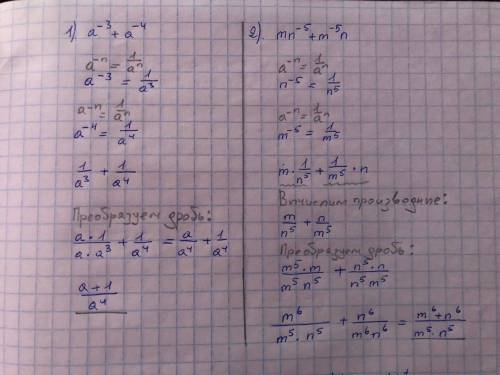 1) a⁻³ + a⁻⁴
a⁻ⁿ = 1/aⁿ
a⁻³ = 1/a³
a⁻ⁿ = 1/aⁿ
a⁻⁴ = 1/a⁴
1/a³ + 1/a⁴
Преобразуем дробь:
a·1/a·a³ + 1/a⁴ = a/a⁴ + 1/a⁴
a+1/a⁴
2). mn⁻⁵ + m⁻⁵n
a⁻ⁿ = 1/aⁿ
n⁻⁵ = 1/n⁵
a⁻ⁿ = 1/aⁿ
m⁻⁵ = 1/m⁵
m · 1/n⁵ + 1/m⁵ · n
Вычислим производные:
m/n⁵ + n/m⁵
Преобразуем дробь:
m⁵·m/m⁵n⁵ + n⁵·n/n⁵m⁵
m⁶/m⁵·n⁵ + n⁶/m⁶+n⁶ = m⁶+n⁶/m⁵·n⁵